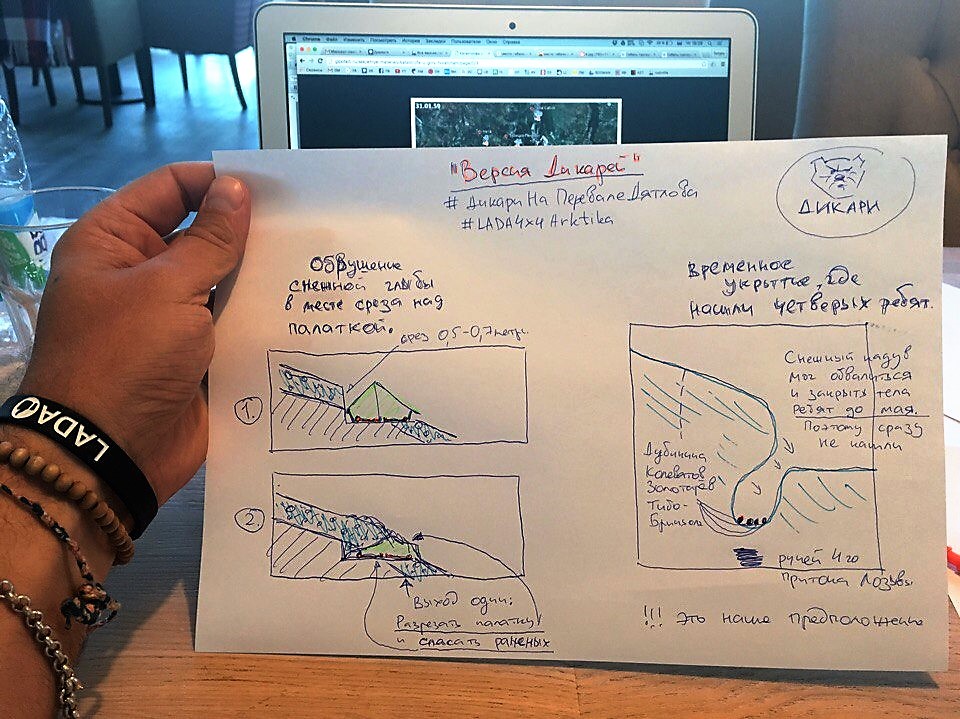 "Версия Дикарей"
# Дикари На Перевале Дятлова
# LADA 4x4 Arktika
ДИКАРИ
Обрушение
снежной глыбы
в месте среза над
палаткой.
срез 0,5-0,7 метр.
1.
2.
Выход один:
Разрезать палатку
и спасать раненых
Временное
укрытие, где
нашли четверых ребят.
Снежный надув
мог обвалиться
и закрыть тела
ребят до мая.
Поэтому сразу
не нашли
Дубинина
Колеватов
Золотарев
Тибо-
Бриньоль
ручей 4го
притока Лозьвы
!!! Это наше предположение
LADA
31.01.59
Chrome